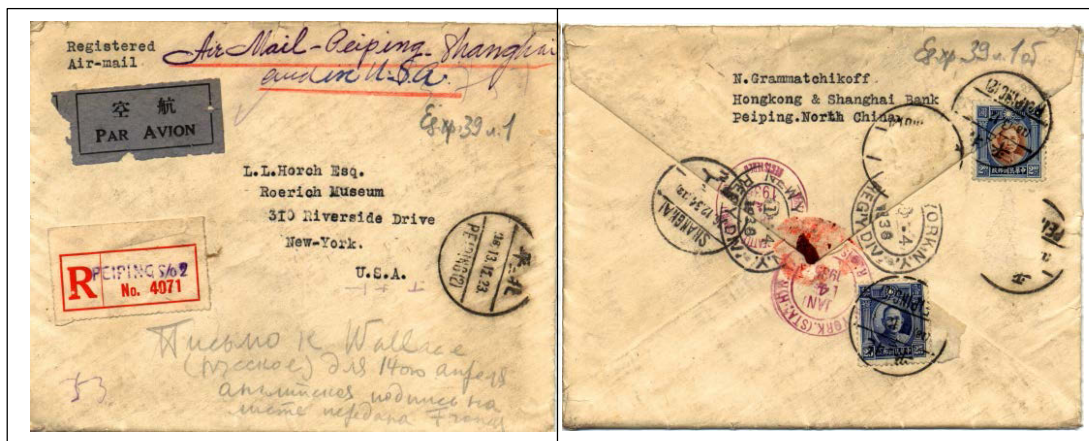 Registered
Air-mail
Air Mail - Peiping - Shanghai
and in U.S.A.
空 航
PAR AVION
Ед.хр. 39 л. 1
L.L.Horch Esq.
Roerich Museum
310 Riverside Drive
New-York.
U.S.A.
PEIPING(2)
R
PEIPING S/o 2
No. 4071
Письмо к Wallace
(русское) для 14ого апреля
английская подпись на
листе передана
53
Ед.хр. 39 л. 1 об
N.Grammatchikoff
Hongkong & Shanghai Bank
Peiping.North China
PEIPING(2)
SHANGHAI
REG'Y DIV.
JAN